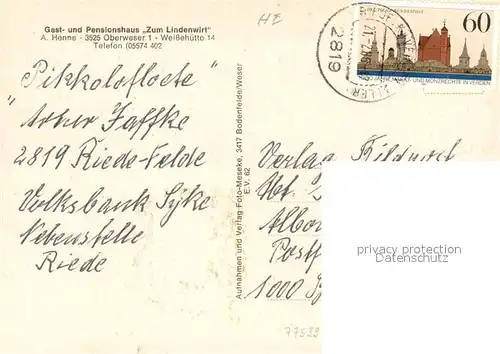 Gast- und Pensionshaus „Zum Lindenwirt"
A. Henne - 3525 Oberweser 1 - Weißehütte 14
Telefon (05574 402
HE
60
2819
MARKT- UND MÜNZRECHTE IN VERDEN
Pikkoloflöte
Arthur Jaffke
2819 Riede-Felde
Volksbank Syke
Nebenstelle
Riede
Aufnahmen und Verlag Foto-Meseke, 3417 Bodenfelde/Weser
E.V. 62
Verlag
Postf
1000
privacy protection
77539